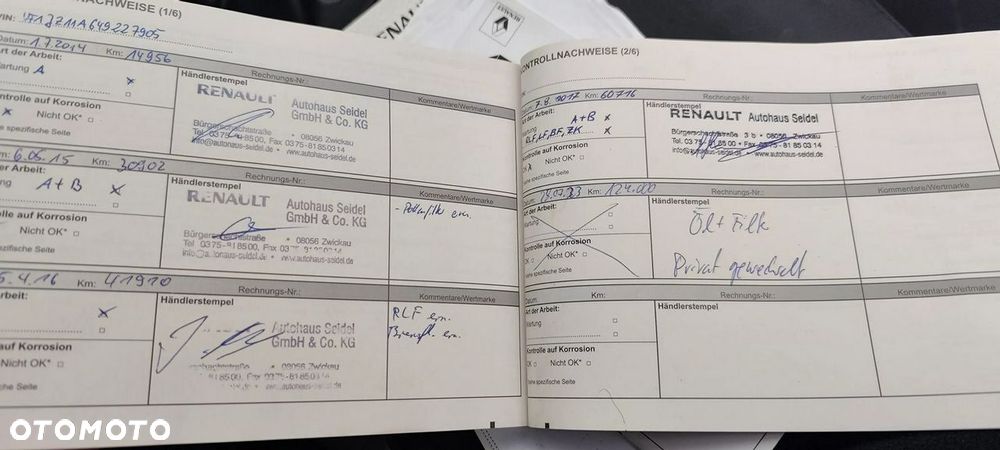 NACHWEISE (1/6)
VIN:
Datum: 1.7.2014 Km: 14956
Art der Arbeit: Rechnungs-Nr.:
Wartung A x
Händlerstempel Kommentare/Wertmarke
RENAULT Autohaus Seidel
GmbH & Co. KG
Kontrolle auf Korrosion
x Nicht OK*
siehe spezifische Seite
Bürgerschachtstraße • 08056 Zwickau
Tel. 0375-818500, Fax 0375-81850314
info@autohaus-seidel.de • www.autohaus-seidel.de
6.05.15 Km: 30902
der Arbeit: Rechnungs-Nr.:
A+B x
Händlerstempel Kommentare/Wertmarke
RENAULT Autohaus Seidel
GmbH & Co. KG
- Pollenfilter ern.
Kontrolle auf Korrosion
Nicht OK*
spezifische Seite
Bürgerschachtstraße • 08056 Zwickau
Tel. 0375-818500, Fax 0375-81850314
info@autohaus-seidel.de • www.autohaus-seidel.de
5.4.16 Km: 41910
Arbeit: Rechnungs-Nr.:
x
Händlerstempel Kommentare/Wertmarke
Autohaus Seidel
GmbH & Co. KG
RLF ern.
Bremsfl. ern.
Kontrolle auf Korrosion
Nicht OK*
spezifische Seite
08056 Zwickau
818500, Fax 0375-81850314
RENAULT
KONTROLLNACHWEISE (2/6)
Datum: 7.8.2017 Km: 60716
Art der Arbeit: Rechnungs-Nr.:
Wartung A+B x
RLF, LF, BF, ZK x
Händlerstempel Kommentare/Wertmarke
RENAULT Autohaus Seidel
Kontrolle auf Korrosion
OK x Nicht OK*
siehe spezifische Seite
Bürgerschachtstraße 3 b • 08056 Zwickau
Tel. 0375-818500 • Fax 0375-81850314
info@autohaus-seidel.de • www.autohaus-seidel.de
Datum: Km: 124.000
Art der Arbeit: Rechnungs-Nr.:
Wartung
Händlerstempel Kommentare/Wertmarke
Öl + Filk
Privat gewechselt
Kontrolle auf Korrosion
OK Nicht OK*
siehe spezifische Seite
Datum: Km:
Art der Arbeit: Rechnungs-Nr.:
Wartung
Händlerstempel Kommentare/Wertmarke
Kontrolle auf Korrosion
OK Nicht OK*
siehe spezifische Seite
OTOMOTO